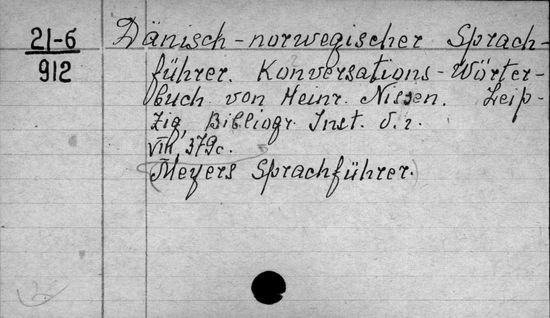 21-6
912
Dänisch-norwegischer Sprach-
führer. Konversations-Wörter-
buch von Heinr. Nissen. Leip-
zig, Bibliogr. Inst.
VIII, 379c.
(Meyers Sprachführer.)